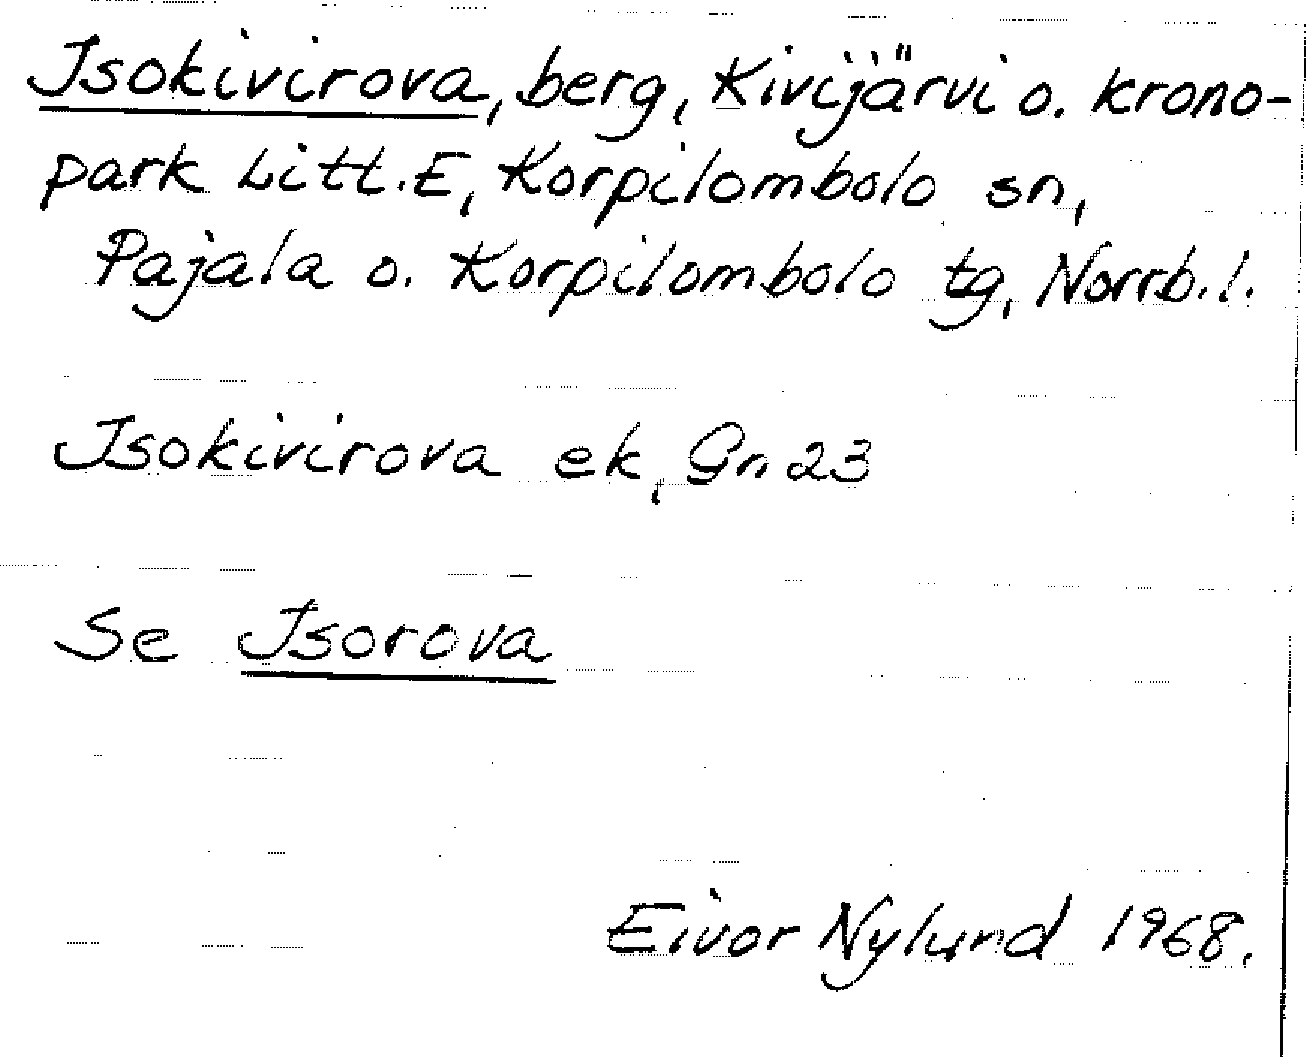 Isokivirova, berg, Kivijärvi o. krono-
park Litt. E, Korpilombolo sn,
Pajala o. Korpilombolo tg, Norrb. l.
Isokivirova ek, Gn 23
Se Isorova
Eivor Nylund 1968.